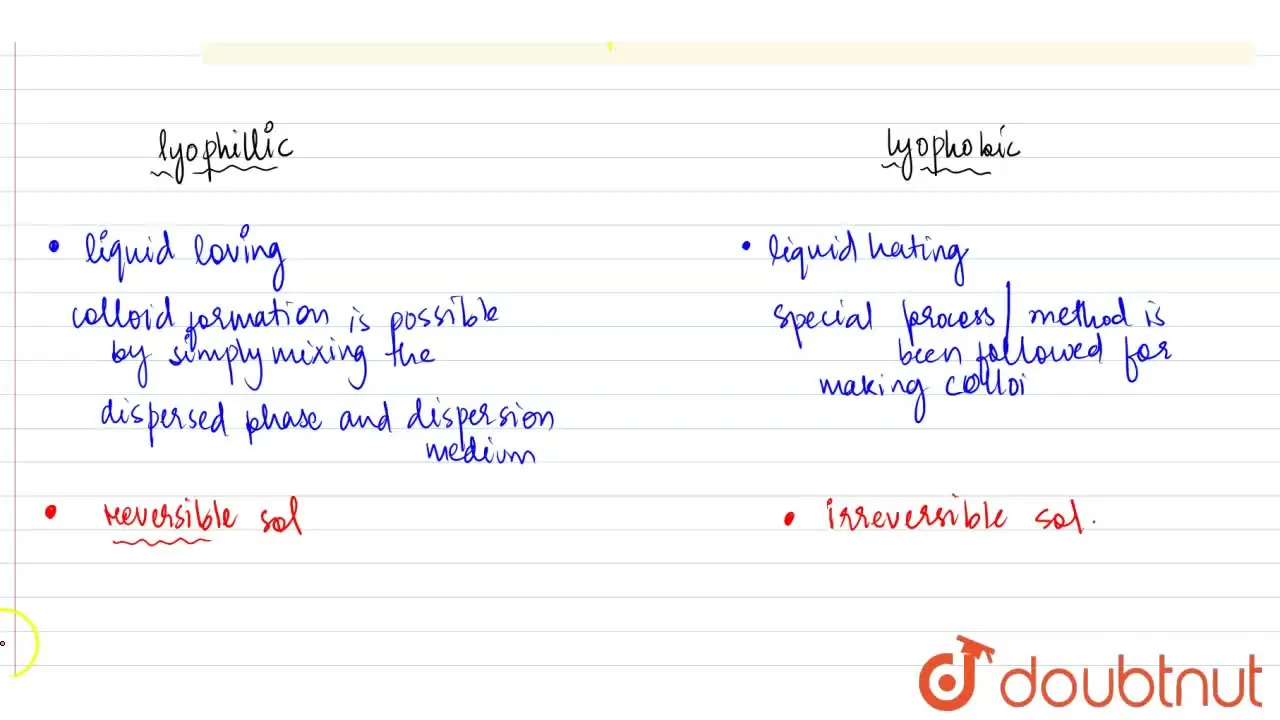 lyophillic
lyophobic
• liquid loving
colloid formation is possible
by simply mixing the
dispersed phase and dispersion
medium
• liquid hating
special process/method is
been followed for
making colloi
• reversible sol
• irreversible sol.
doubtnut